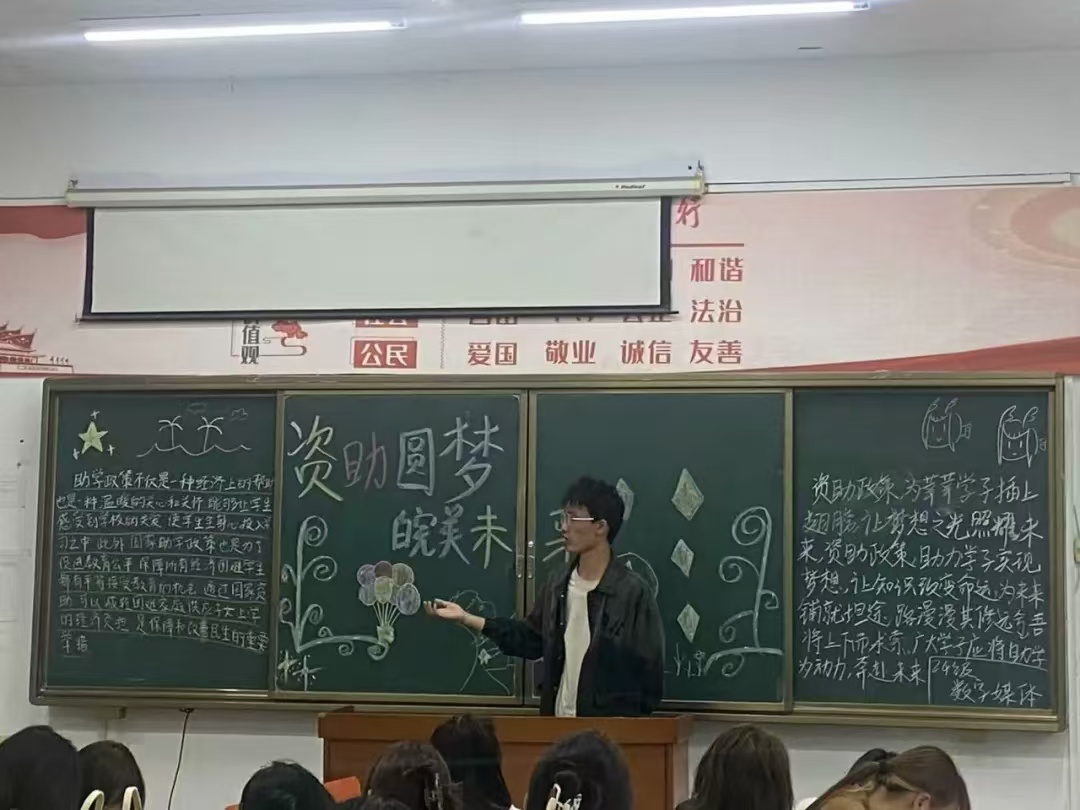 和谐
法治
价值观
公民
爱国 敬业 诚信 友善
助学政策不仅是一种经济上的帮助
也是一种温暖的关心和关怀 能够让学生
感受到学校的关爱 使学生全身心投入学
习之中 此外 国家助学政策也是为了
促进教育公平 保障所有经济困难学生
都有平等接受教育的机会 通过国家资
助 可以减轻困难家庭供应子女上学
的经济负担 是保障和改善民生的重要
举措
资助圆梦
皖美未来
资助政策,为莘莘学子插上
翅膀,让梦想之光照耀未
来,资助政策,助力学子实现
梦想,让知识改变命运,为未来
铺就坦途,路漫漫其修远兮吾
将上下而求索,广大学子应将助学
为动力,奔赴未来
24级
数字媒体